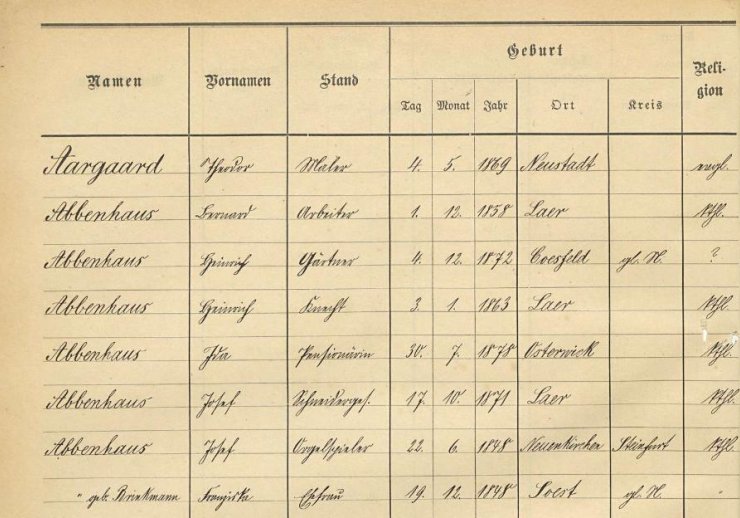 Geburt
Namen Vornamen Stand Reli-
gion
Tag Monat Jahr Ort Kreis
Aargaard Theodor Maler 4. 5. 1869 Neustadt evgl.
Abbenhaus Bernard Arbeiter 1. 12. 1858 Laer kthl.
Abbenhaus Heinrich Gärtner 4. 12. 1872 Coesfeld gl. N. ?
Abbenhaus Heinrich Knecht 3. 1. 1863 Laer kthl.
Abbenhaus Ida Pensionärin 30. 7. 1878 Osterwick kthl.
Abbenhaus Josef Schneiderges. 17. 10. 1871 Laer kthl.
Abbenhaus Josef Orgelspieler 22. 6. 1848 Neuenkirchen Steinfurt kthl.
" geb. Brinkmann Franziska Ehefrau 19. 12. 1848 Soest gl. N. "